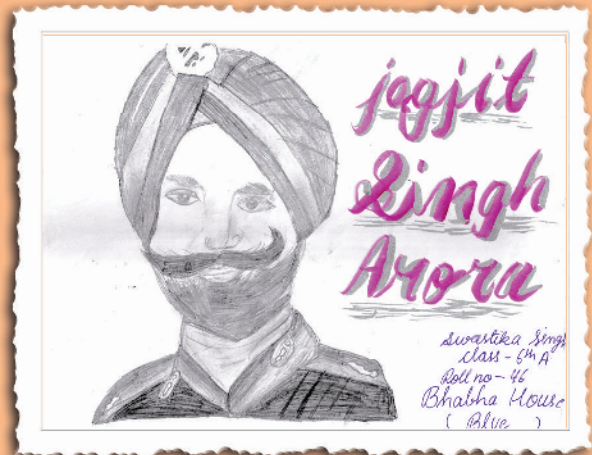 jagjit
Singh
Arora
Swastika Singh
class - 6th A
Roll no - 46
Bhabha House
( Blue )